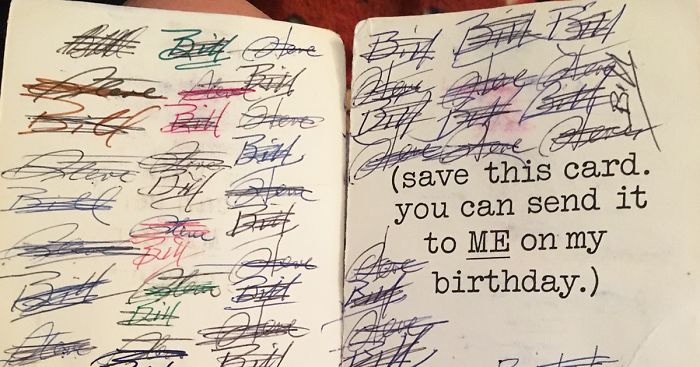 Bill Bill Steve
Steve Steve Bill
Bill Bill Steve
Steve Steve Bill
Bill Bill Steve
Steve Steve Bill
Bill Steve
Bill Steve Bill
Bill Steve
Steve Steve Bill
Bill Bill Bill
Steve Steve Steve
Bill Bill Bill
Bill
Steve Steve Steve
(save this card.
you can send it
to ME on my
birthday.)
Steve
Bill
Steve
Bill